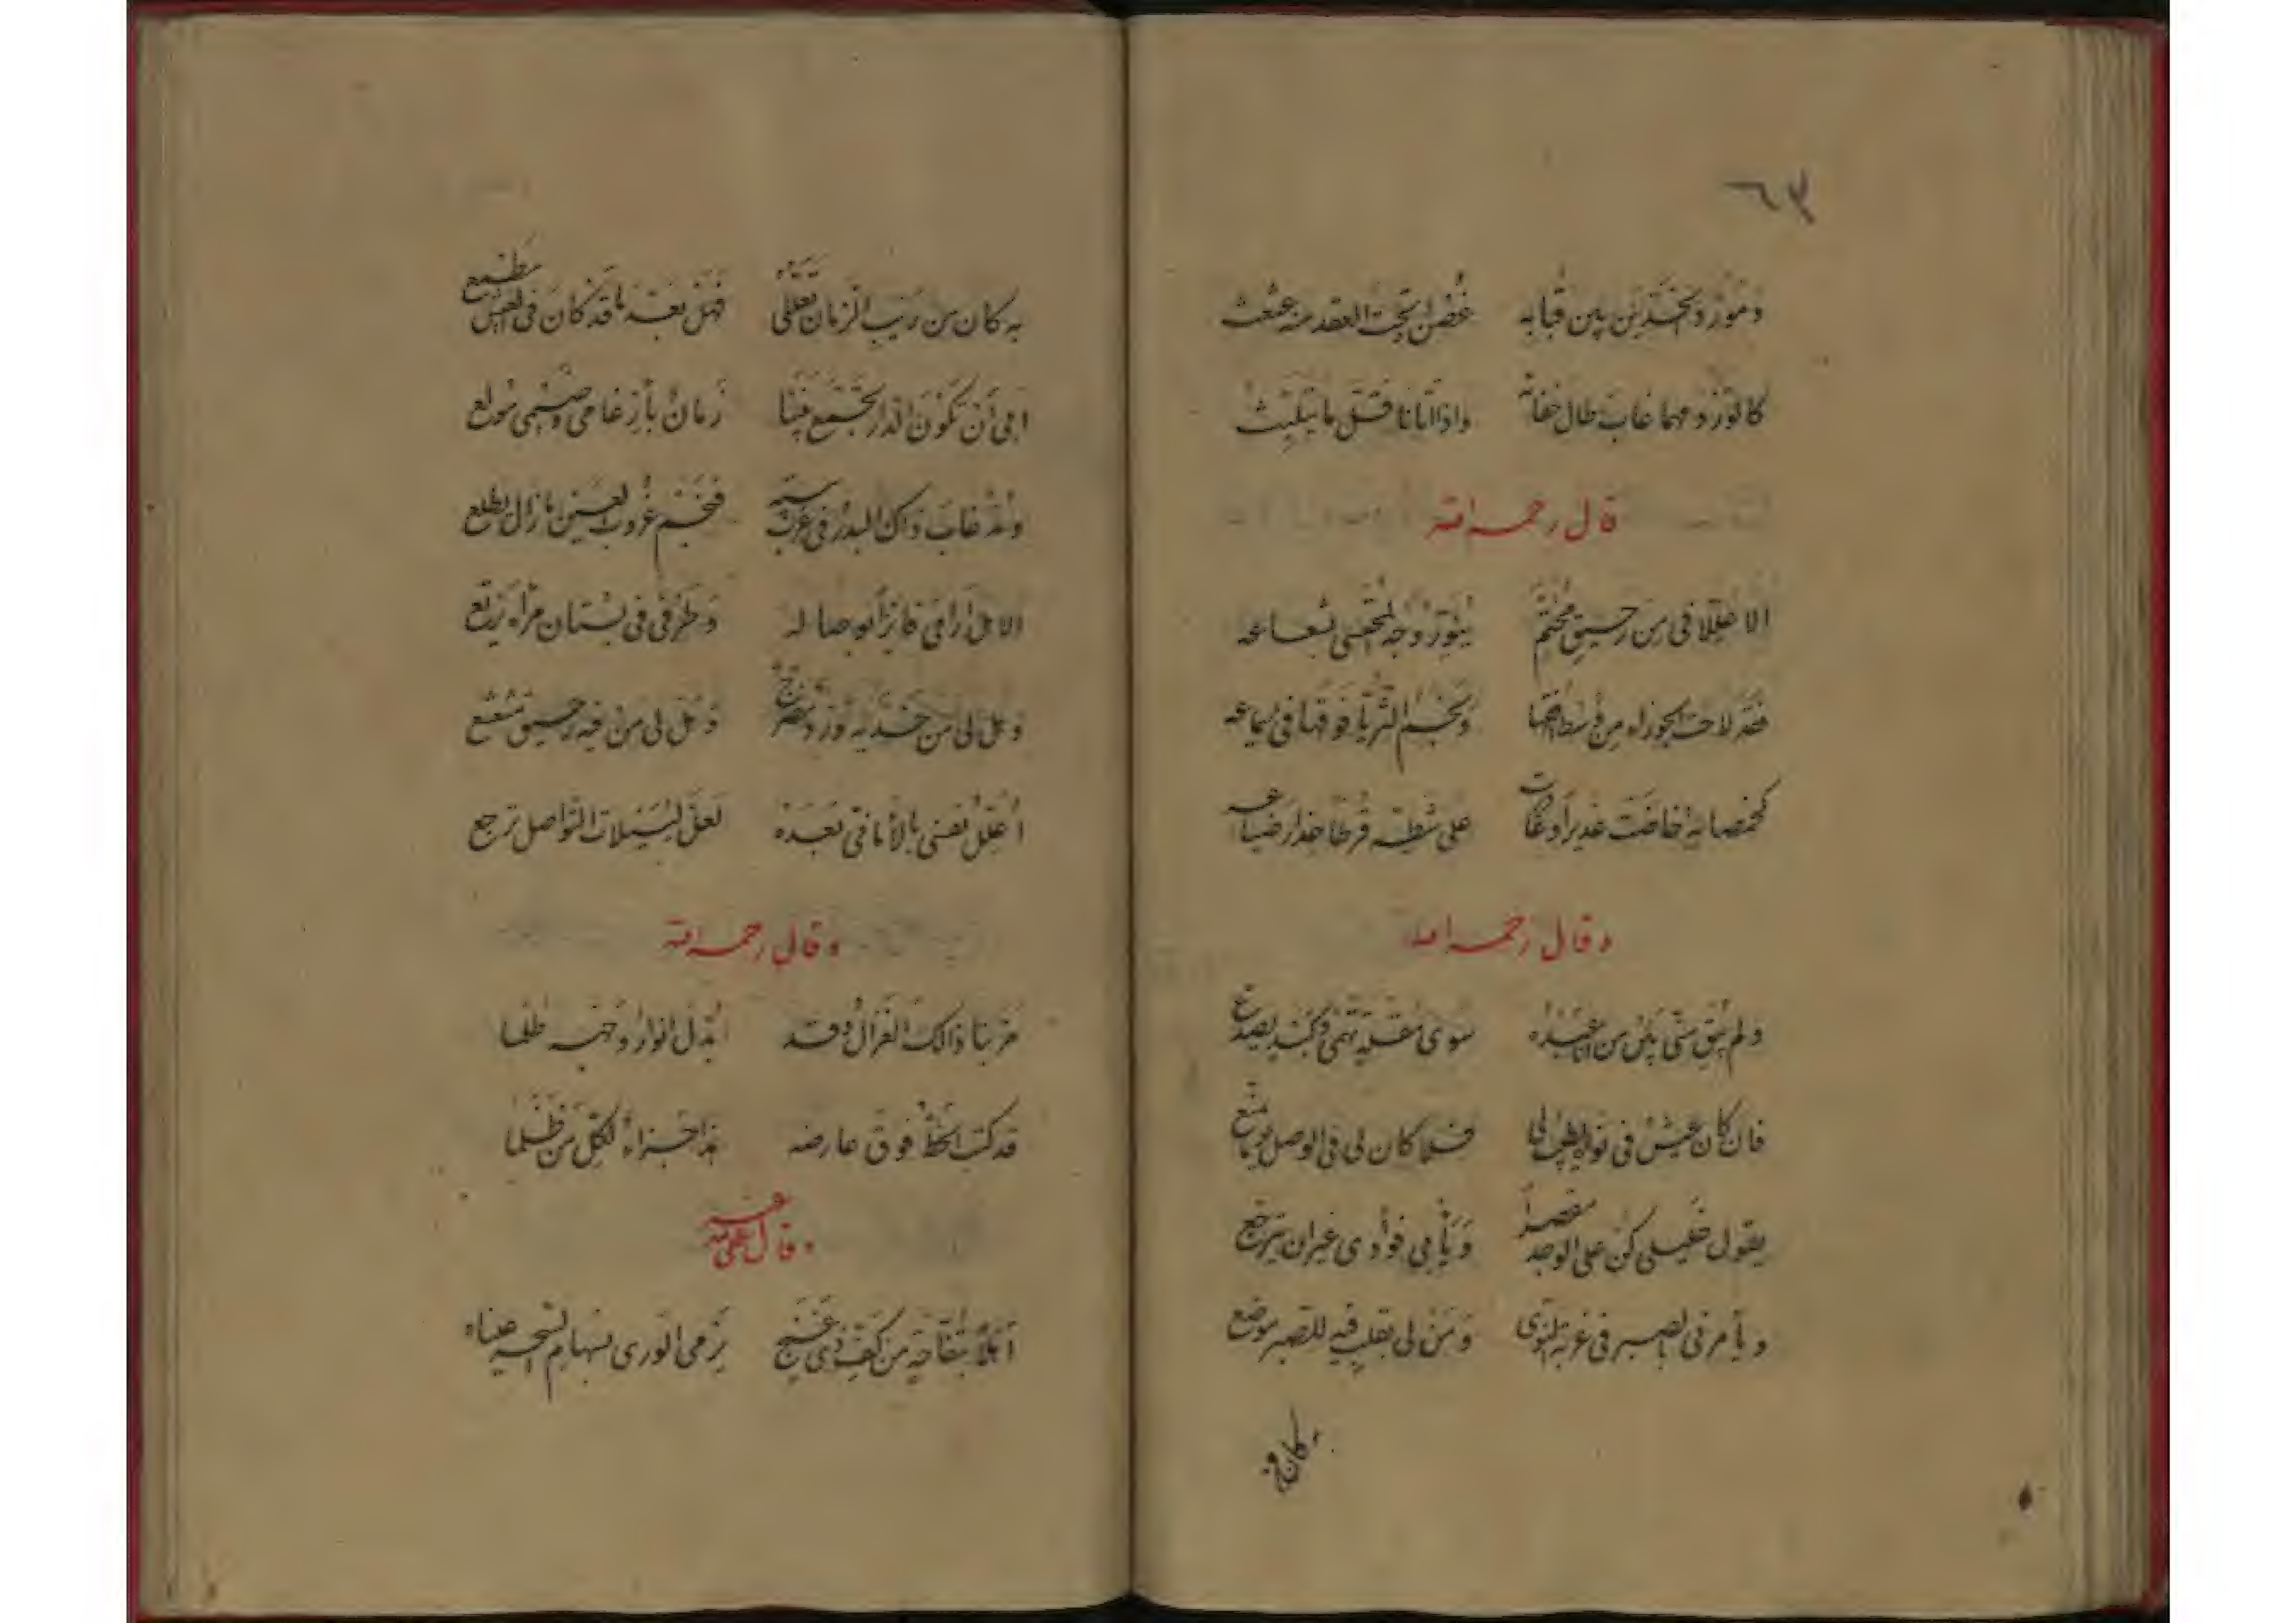 ٦٣
ومورد الخدين بين قبابه غصن تحت العقد منه عثعث
كالورد مهما غاب طال جفاؤه واذا اتانا قل ما يتلبث
قال رحمه الله
الا عللانى من رحيق مختم ينور وجه المحتسى بشعاعه
فقد لاحت الجوزاء من ونجم الثريا فوقها فى سماعه
خاضت غديرا وغادرت على شطه قرطا حذار ضياعه
وقال رحمه الله
ولم يبق منى بين من بعده سوى مقلة تهمى وكبد تصدع
فان كان عيش فى نواه يطيب لى فلا كان لى فى الوصل
يقول خليلى كن على الوجد مقصرا ويأبى فؤادى غير ان يترجع
ويأمرنى بالصبر فى غربة النوى ومن لى بقلب فيه للصبر موضع
به كان من ريب الزمان تعللى فهل بعد ما قد كان فى العيش مطمع
ابى أن تكون الدار تجمع بيننا زمان بأرغامى وضيمى مولع
ومذ غاب ذاك البدر فى غربته فنجم غروب العين ما زال يطلع
الا هل أرانى فائزا بوصاله وطرفى فى بستان مرآه يرتع
وهل لى من خديه ورد مضرج وهل لى من فيه رحيق مشعشع
أعلل نفسى بالأمانى بعده لعل لييلات التواصل ترجع
وقال رحمه الله
مر بنا ذالك الغزال وقد بدل انوار وجهه ظلما
قد كتب الخط فوق عارضه هذا جزاء لكل من ظلما
وقال عفى عنه
أهلا بتفاحة من كف ذى غنج يرمى الورى بسهام السحر عيناه